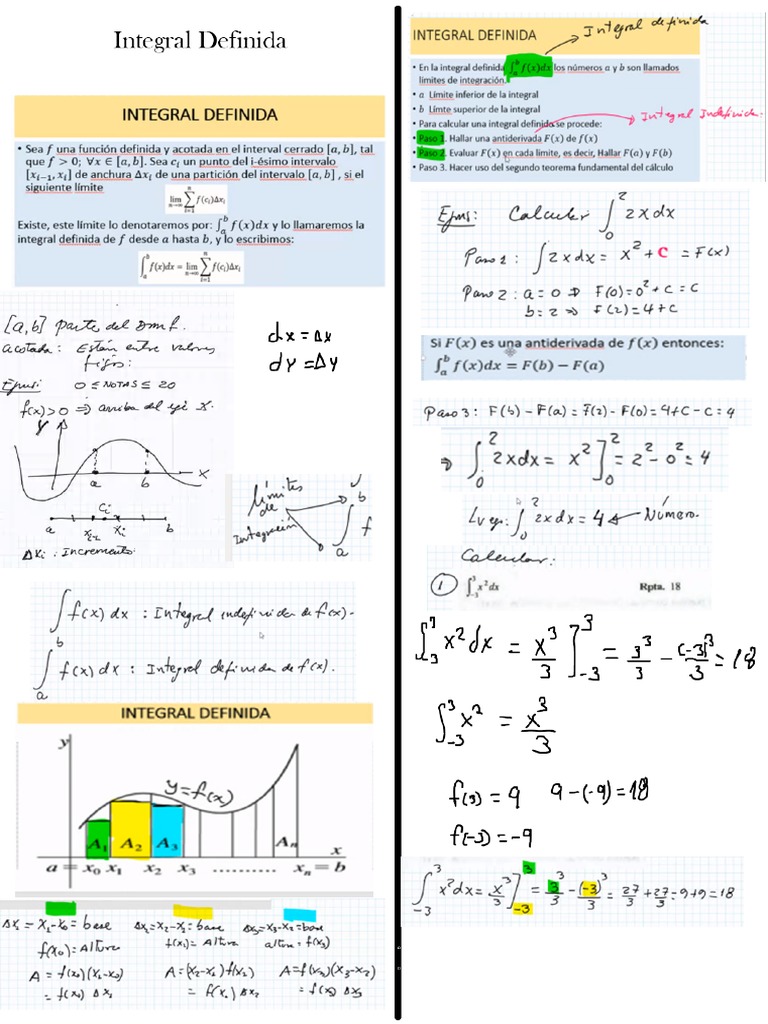 Integral Definida
INTEGRAL DEFINIDA
• Sea f una función definida y acotada en el interval cerrado [a, b], tal
que f > 0; ∀x ∈ [a, b]. Sea cᵢ un punto del i-ésimo intervalo
[xᵢ₋₁, xᵢ] de anchura Δxᵢ de una partición del intervalo [a, b] , si el
siguiente límite
lim n→∞ ∑ i=1 n f(cᵢ)Δxᵢ
Existe, este límite lo denotaremos por: ∫ₐᵇ f(x)dx y lo llamaremos la
integral definida de f desde a hasta b, y lo escribimos:
∫ₐᵇ f(x)dx = lim n→∞ ∑ i=1 n f(cᵢ)Δxᵢ
[a,b] parte del Dom f.
acotada: Están entre valores
fijos:
Ejms: 0 ≤ NOTAS ≤ 20
f(x)>0 ⇒ arriba del eje X.
dx = Δx
dy = Δy
Y
a b X
a cᵢ b
xᵢ₋₁ xᵢ
Δxᵢ : Incremento
límites
de
Integración
b
∫ f
a
∫ f(x) dx : Integral indefinida de f(x).
b
∫ f(x) dx : Integral definida de f(x).
a
INTEGRAL DEFINIDA
y
y=f(x)
A₁ A₂ A₃ Aₙ
x
a = x₀ x₁ x₂ x₃ ........... xₙ = b
Δx₁ = x₁-x₀ = base
f(x₀) = Altura
A = f(x₀)(x₁-x₀)
= f(x₀) Δx₁
Δx₂ = x₂-x₁ = base
f(x₁) = Altura
A = (x₂-x₁) f(x₂)
= f(x₁) Δx₂
Δx₃ = x₃-x₂ = base
altura = f(x₃)
A = f(x₃)(x₃-x₂)
= f(x₃) Δx₃
INTEGRAL DEFINIDA
Integral definida
• En la integral definida ∫ₐᵇ f(x)dx los números a y b son llamados
limites de integración.
• a Límite inferior de la integral
• b Límte superior de la integral
• Para calcular una integral definida se procede:
Integral Indefinida.
• Paso 1. Hallar una antiderivada F(x) de f(x)
• Paso 2. Evaluar F(x) en cada limite, es decir, Hallar F(a) y F(b)
• Paso 3. Hacer uso del segundo teorema fundamental del cálculo
Ejms: Calcular ∫₀² 2x dx
Paso 1: ∫ 2x dx = x² + C = F(x)
Paso 2: a = 0 ⇒ F(0) = 0² + C = C
b = 2 ⇒ F(2) = 4 + C
Si F(x) es una antiderivada de f(x) entonces:
∫ₐᵇ f(x)dx = F(b) − F(a)
Paso 3: F(b) - F(a) = F(2) - F(0) = 4+C - C = 4
⇒ ∫₀² 2x dx = x² ]₀² = 2² - 0² = 4
Luego: ∫₀² 2x dx = 4 ← Número.
Calcular:
1 ∫₋₃³ x² dx Rpta. 18
∫₋₃³ x² dx = x³/3 ]₋₃³ = 3³/3 - (-3)³/3 = 18
∫₋₃³ x² = x³/3
f(3) = 9 9-(-9) = 18
f(-3) = -9
∫₋₃³ x² dx = x³/3 ]₋₃³ = 3³/3 - (-3)³/3 = 27/3 + 27/3 = 9+9 = 18